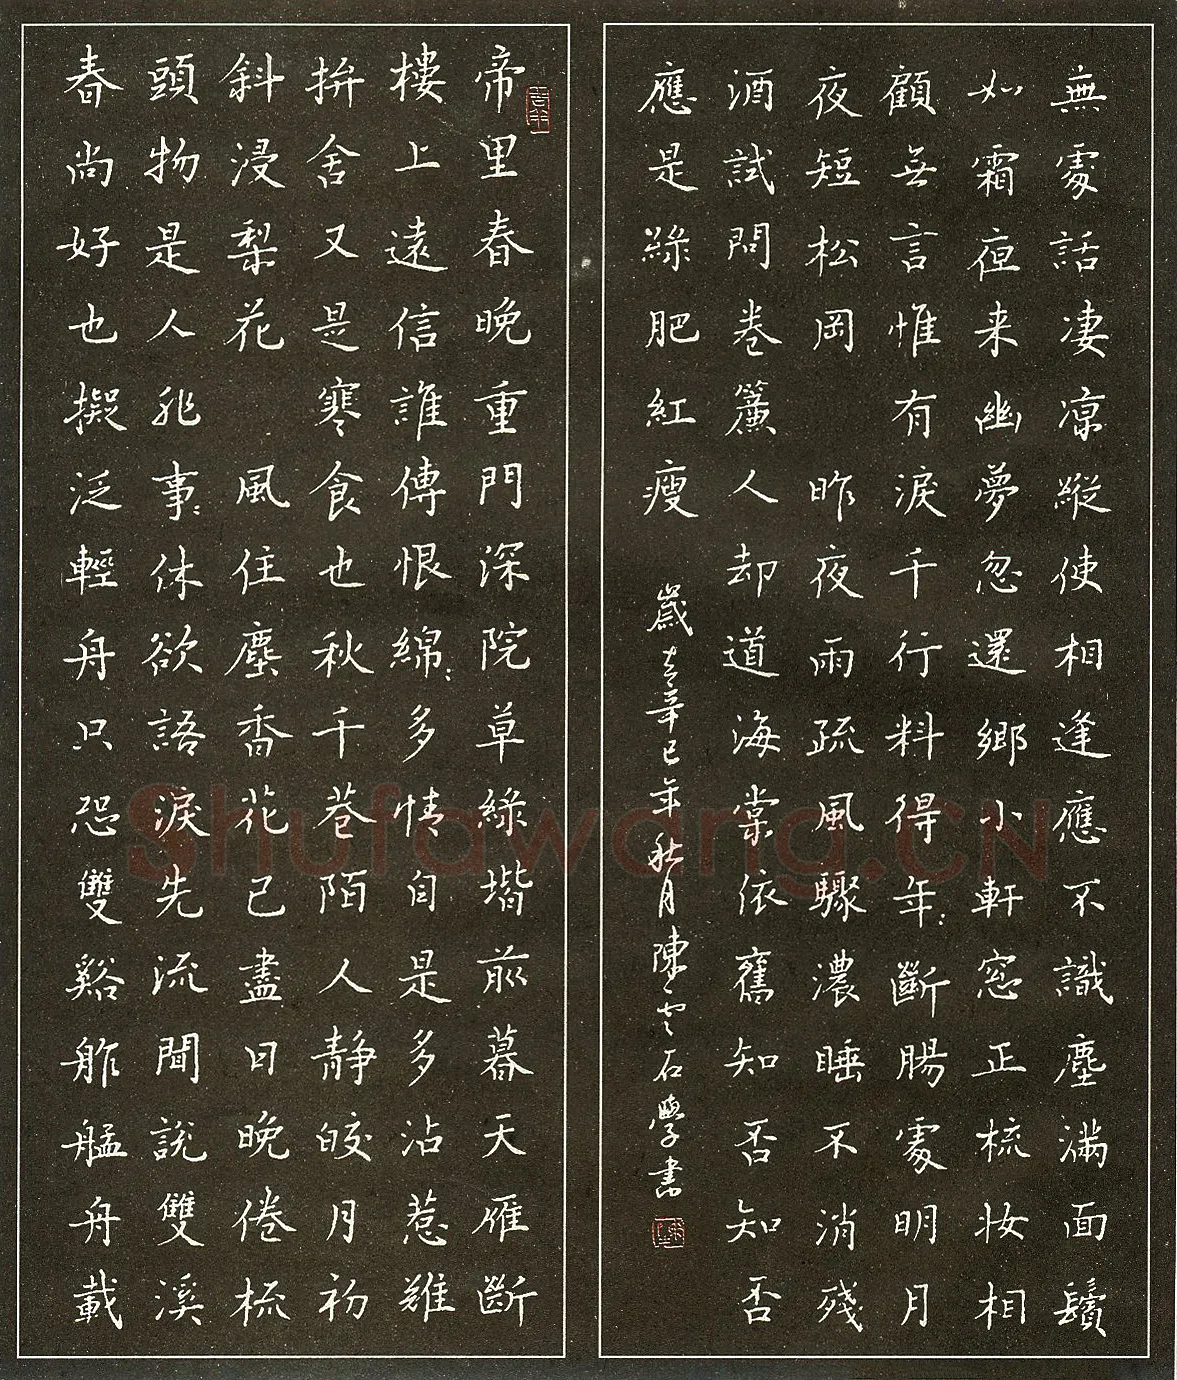 帝里春晚重門深院草綠堦前暮天雁斷
樓上遠信誰傳恨綿〻多情自是多沾惹難
拚舍又是寒食也秋千巷陌人靜皎月初
斜浸梨花　風住塵香花已盡日晚倦梳
頭物是人非事〻休欲語淚先流聞說雙溪
春尚好也擬泛輕舟只恐雙谿舴艋舟載
無處話凄凉縱使相逢應不識塵滿面鬢
如霜夜来幽夢忽還鄉小軒窓正梳妝相
顧無言惟有淚千行料得年〻斷腸處明月
夜短松岡　昨夜雨疏風驟濃睡不消殘
酒試問卷簾人却道海棠依舊知否知否
應是綠肥紅瘦
歲在辛巳年秋月陳雲石學書
Shufawang.CN